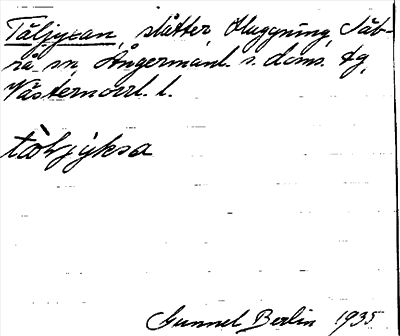 Täljyxan, slåtter, Huggning, Säb-
rå sn, Ångermanl. s. doms. tg,
Västernorrl. l.
tàljỳksa
Gunnel Berlin 1935